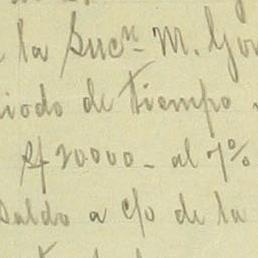 la Sucn. M. Gón
iodo de tiempo
$ 20000 - al 7%
Saldo a c/o de la